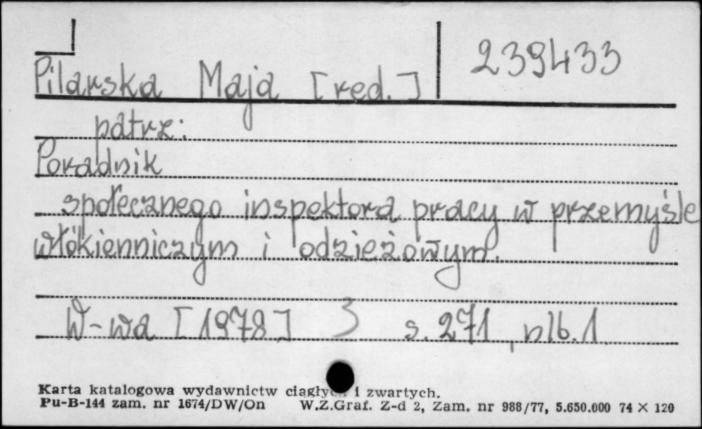 Pilarska Maja [red.] 239433
patrz:
Poradnik
społecznego inspektora pracy w przemyśle
włókienniczym i odzieżowym.
W-wa [1978] s. 271, nlb. 1
Karta katalogowa wydawnictw ciągłych i zwartych.
Pu-B-144 zam. nr 1674/DW/On W.Z.Graf. Z-d 2, Zam. nr 988/77, 5.650.000 74 X 120